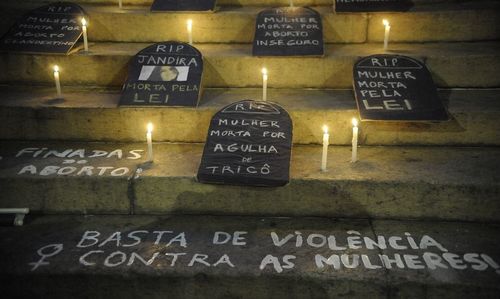 RIP
MULHER
MORTA POR
ABORTO
CLANDESTINO
MULHER
MORTA POR
ABORTO
INSEGURO
RIP
JANDIRA
MORTA PELA
LEI
RIP
MULHER
MORTA PELA
LEI
RIP
MULHER
MORTA POR
AGULHA
DE
TRICÔ
FINADAS
DO
ABORTO!
BASTA DE VIOLÊNCIA
CONTRA AS MULHERES!